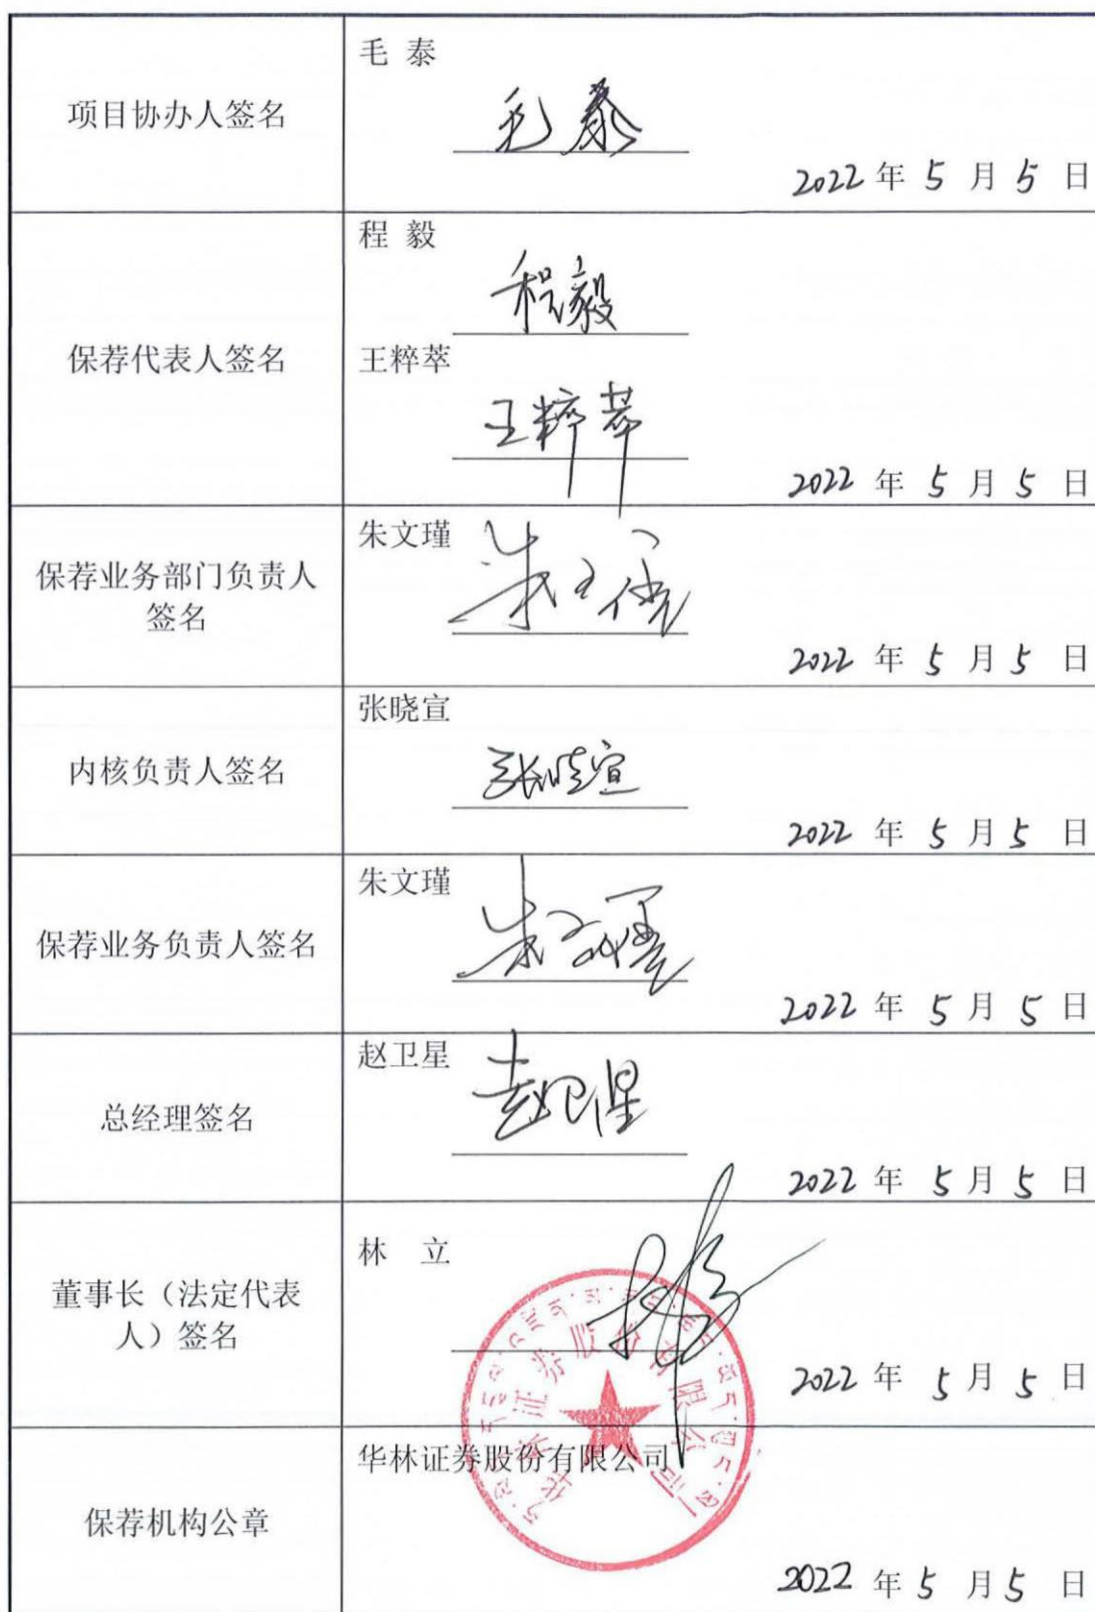 项目协办人签名
毛 泰
毛泰
2022 年 5 月 5 日
保荐代表人签名
程 毅
程毅
王粹萃
王粹萃
2022 年 5 月 5 日
保荐业务部门负责人
签名
朱文瑾
朱文瑾
2022 年 5 月 5 日
内核负责人签名
张晓宣
张晓宣
2022 年 5 月 5 日
保荐业务负责人签名
朱文瑾
朱文瑾
2022 年 5 月 5 日
总经理签名
赵卫星
赵卫星
2022 年 5 月 5 日
董事长（法定代表
人）签名
林 立
2022 年 5 月 5 日
保荐机构公章
华林证券股份有限公司
华林证券股份有限公司
2022 年 5 月 5 日